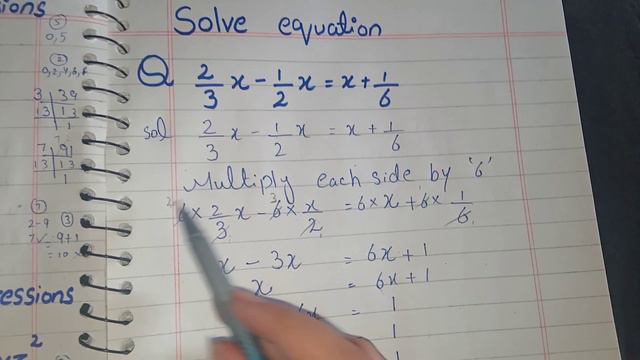 ions
⑤
0,5
②
0,2,4,6,8
3 | 39
13 | 13
1
7 | 91
13 | 13
1
⑦ ③
2-9
7 -9+1
= 10
essions
2
Solve equation
Q 2/3 x - 1/2 x = x + 1/6
Sol 2/3 x - 1/2 x = x + 1/6
Multiply each side by '6'
6 × 2/3 x - 6 × x/2 = 6 × x + 6 × 1/6
x - 3x = 6x + 1
x = 6x + 1
= 1
1